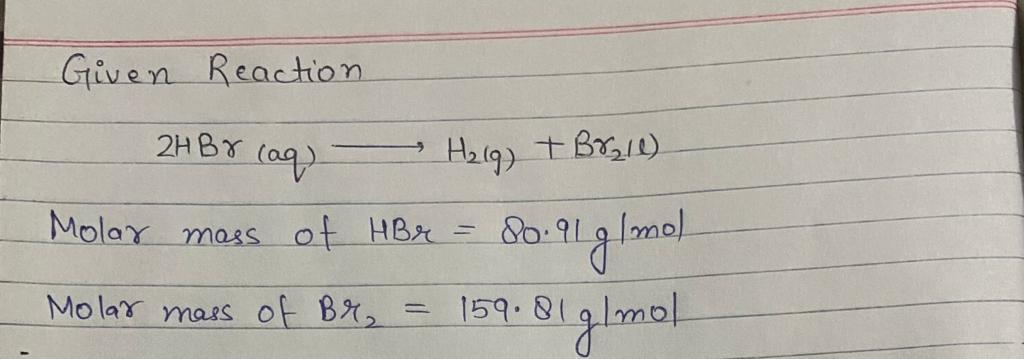 Given Reaction
2HBr (aq) ⟶ H₂(g) + Br₂(l)
Molar mass of HBr = 80.91 g/mol
Molar mass of Br₂ = 159.81 g/mol